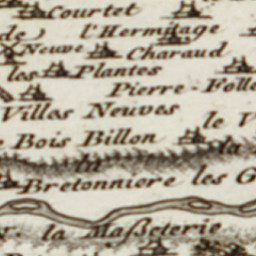 Courtet
de) l'Hermitage
Neuve Charaud
les Plantes
Pierre-Folle
Villes Neuves
le V
Bois Billon
la
Bretonniere les G
la Maßeterie